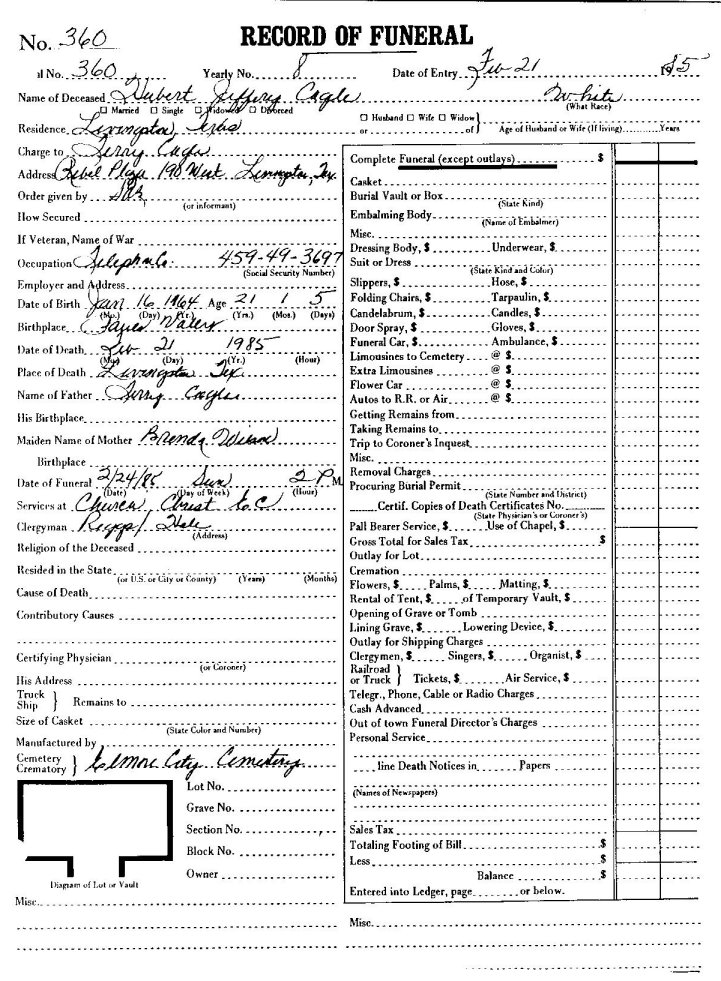 No. 360 RECORD OF FUNERAL
al No. 360 Yearly No. 8 Date of Entry Feb 21 1985
Name of Deceased Hubert Jeffery Cagle White
(What Race)
☐ Married ☐ Single ☐ Widowed ☐ Divorced
☐ Husband ☐ Wife ☐ Widow }
or of } Age of Husband or Wife (If living) Years
Residence Livingston, Texas
Charge to Jerry Cagle
Address Rebel Plaza 190 West Livingston, Tex.
Order given by
(or informant)
How Secured
If Veteran, Name of War
Occupation Telephone Co. 459-49-3697
(Social Security Number)
Employer and Address
Date of Birth Jan 16 1964 Age 21 1 5
(Mo.) (Day) (Yr.) (Yrs.) (Mos.) (Days)
Birthplace
Date of Death Feb 21 1985
(Mo.) (Day) (Yr.) (Hour)
Place of Death Livingston Tex.
Name of Father Jerry Cagle
His Birthplace
Maiden Name of Mother Brenda
Birthplace
Date of Funeral 2/24/85 Sun 2 P M.
(Date) (Day of Week) (Hour)
Services at Church Christ E.C.
Clergyman Hale
(Address)
Religion of the Deceased
Resided in the State
(or U.S. or City or County) (Years) (Months)
Cause of Death
Contributory Causes
Certifying Physician
(or Coroner)
His Address
Truck }
Ship } Remains to
Size of Casket
(State Color and Number)
Manufactured by
Cemetery }
Crematory } Elmore City Cemetery
Lot No.
Grave No.
Section No.
Block No.
Owner
Diagram of Lot or Vault
Misc.
Complete Funeral (except outlays) $
Casket
Burial Vault or Box
(State Kind)
Embalming Body
(Name of Embalmer)
Misc.
Dressing Body, $ Underwear, $
Suit or Dress
(State Kind and Color)
Slippers, $ Hose, $
Folding Chairs, $ Tarpaulin, $
Candelabrum, $ Candles, $
Door Spray, $ Gloves, $
Funeral Car, $ Ambulance, $
Limousines to Cemetery @ $
Extra Limousines @ $
Flower Car @ $
Autos to R.R. or Air @ $
Getting Remains from
Taking Remains to
Trip to Coroner's Inquest
Misc.
Removal Charges
Procuring Burial Permit
(State Number and District)
Certif. Copies of Death Certificates No.
(State Physician's or Coroner's)
Pall Bearer Service, $ Use of Chapel, $
Gross Total for Sales Tax $
Outlay for Lot
Cremation
Flowers, $ Palms, $ Matting, $
Rental of Tent, $ of Temporary Vault, $
Opening of Grave or Tomb
Lining Grave, $ Lowering Device, $
Outlay for Shipping Charges
Clergymen, $ Singers, $ Organist, $
Railroad }
or Truck } Tickets, $ Air Service, $
Telegr., Phone, Cable or Radio Charges
Cash Advanced
Out of town Funeral Director's Charges
Personal Service
line Death Notices in Papers
(Names of Newspapers)
Sales Tax
Totaling Footing of Bill $
Less $
Balance $
Entered into Ledger, page or below.
Misc.